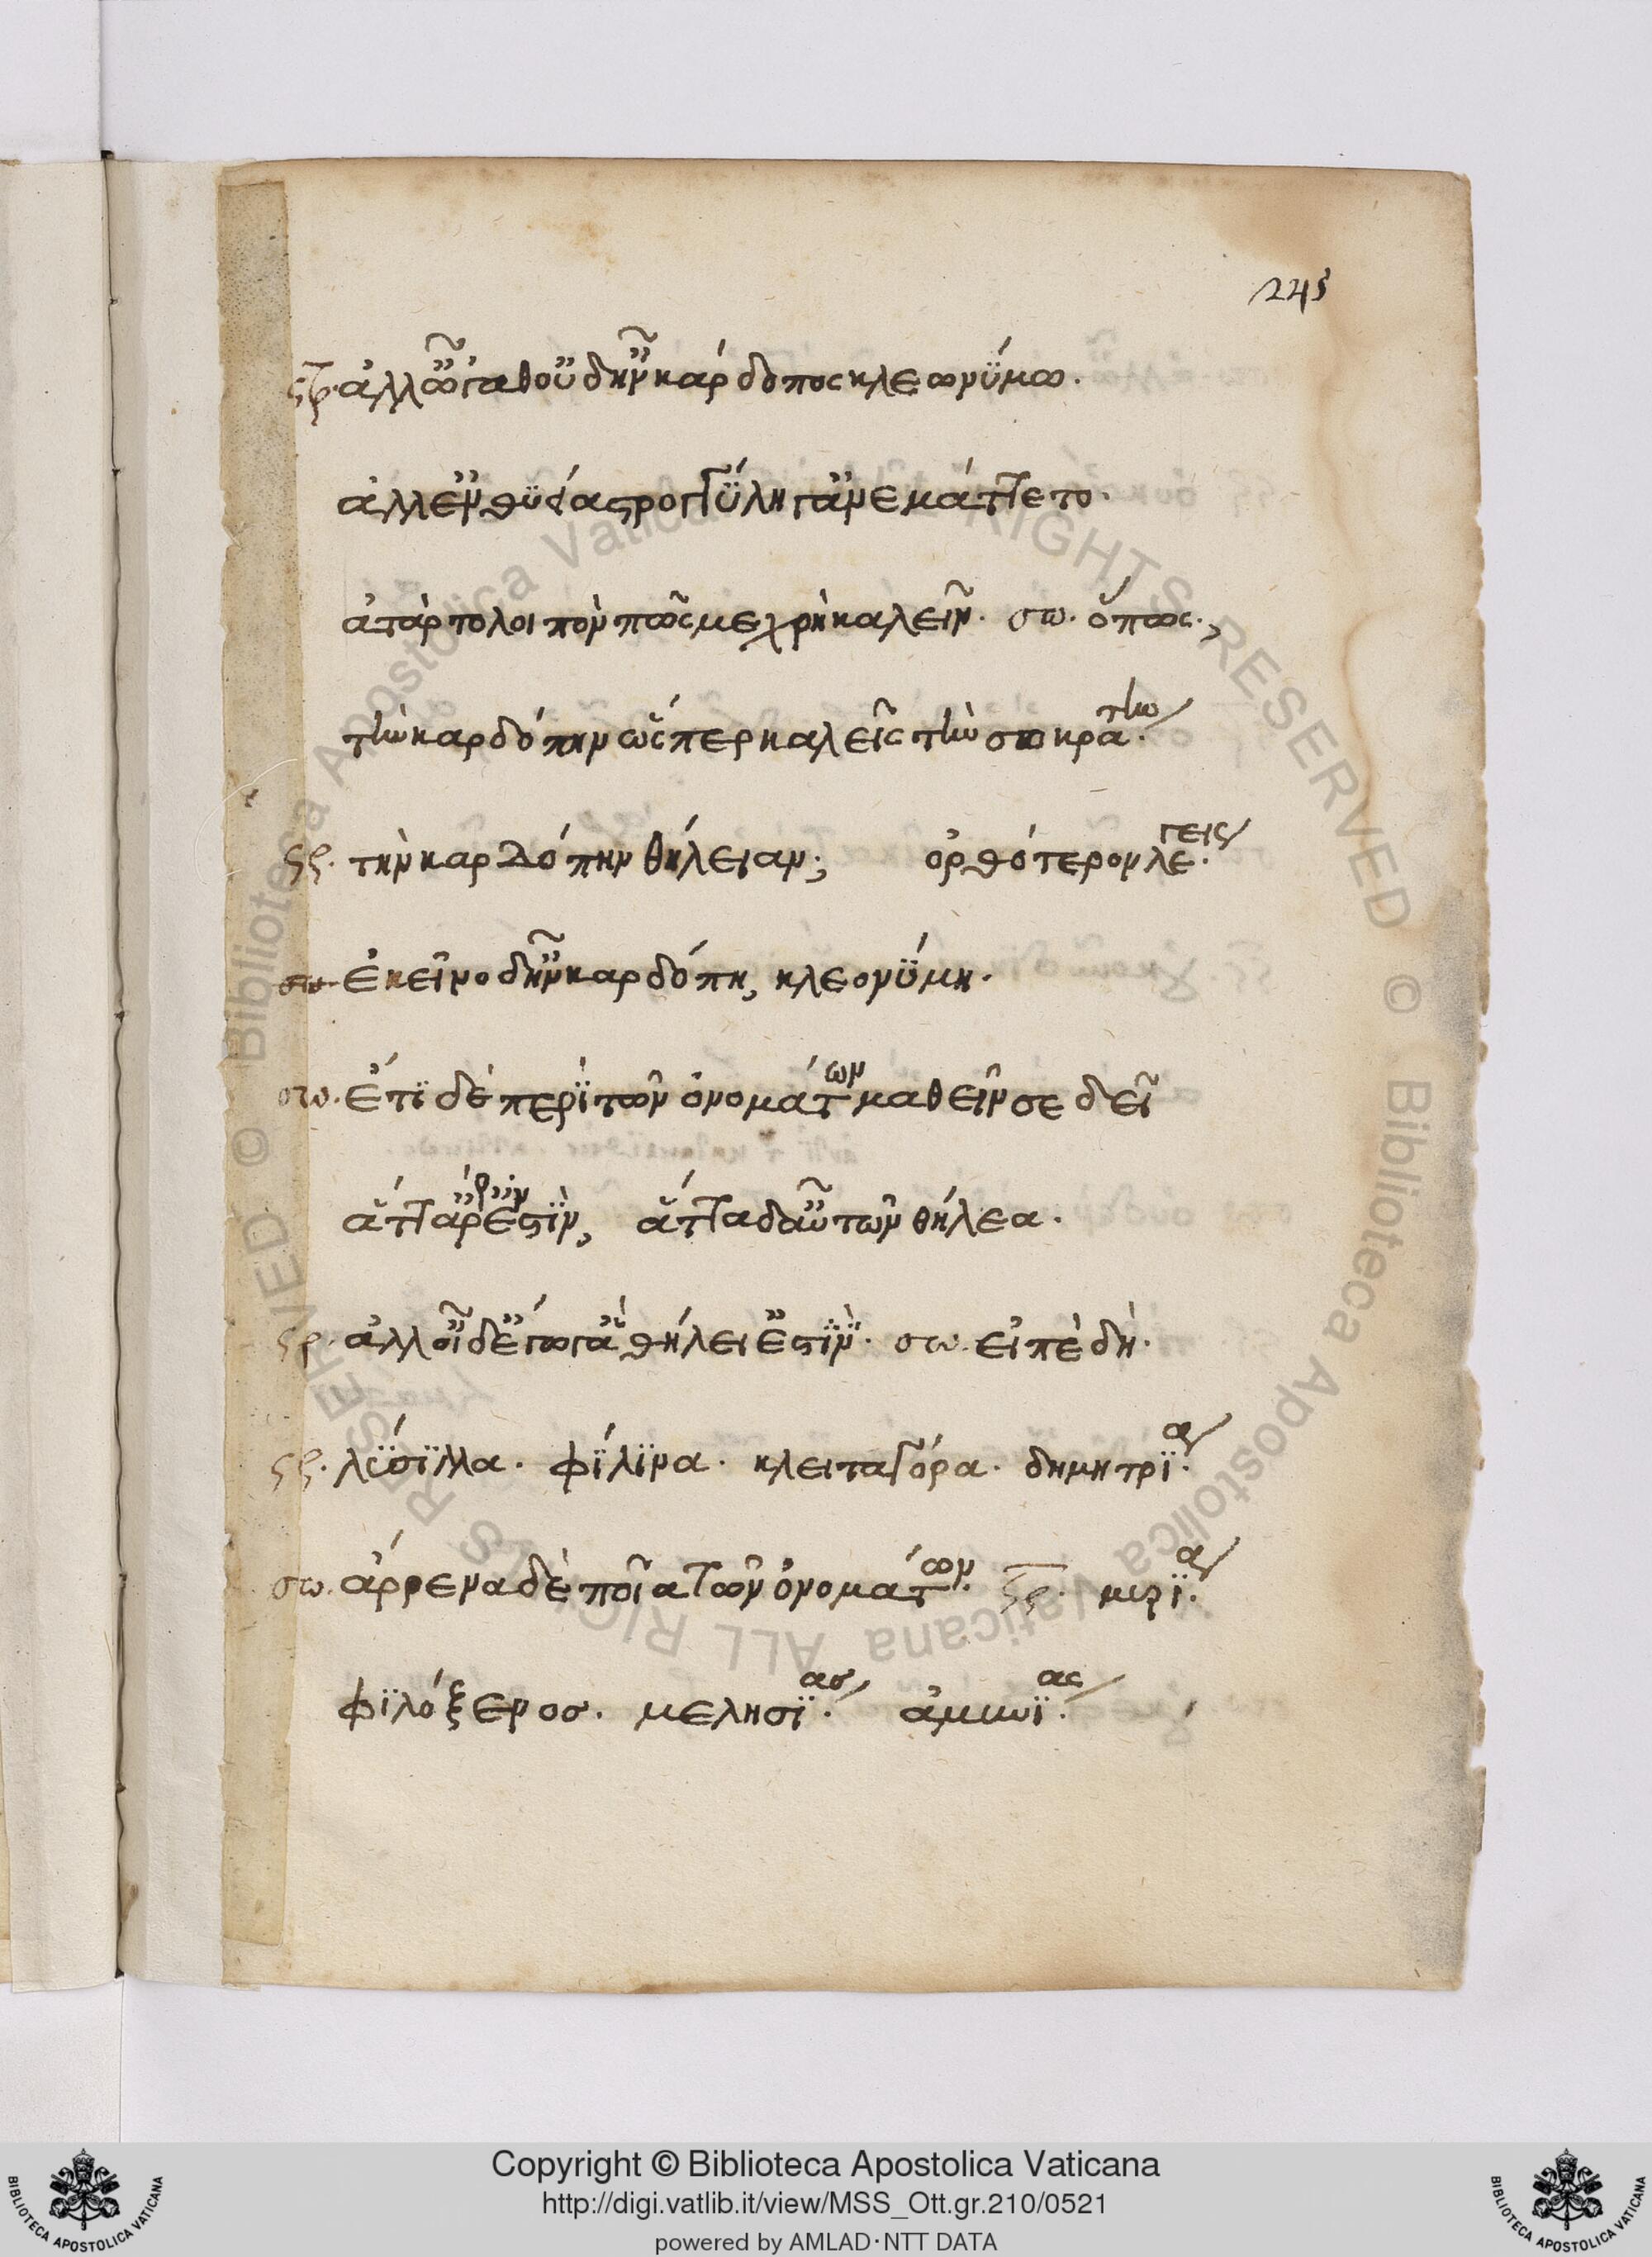 245
στρ. ἀλλ' ὦγάθ' οὐδ' ἦν κάρδοπος κλεωνύμω.
ἀλλ' ἐν θυΐα στρογγύλη γ' ἂν ἐμάττετο.
ἀτὰρ τὸ λοιπὸν πῶς με χρὴ καλεῖν. σω. ὅπως.,
τὴν καρδόπην ὥσπερ καλεῖς τὴν σωκράτην.
στρ. τὴν καρδόπην θήλειαν; ὀρθότερον λέγεις.
σω. ἐκεῖνο δ' ἦν καρδόπη, κλεονύμη.
σω. ἔτι δὲ περὶ τῶν ὀνομάτων μαθεῖν σε δεῖ
ἅττ' ἄρρεν' ἐστὶν, ἅττα δ' αὐτῶν θήλεα.
στρ. ἀλλ' οἶδ' ἔγωγ' ἃ θήλει' ἐστὶν. σω. εἰπὲ δή.
στρ. λύσιλλα. φίλιννα. κλειταγόρα. δημητρία.
σω. ἄρρενα δὲ ποῖα τῶν ὀνομάτων. στρ. μυρία.
φιλόξενοσ. μελησίασ. ἀμυνίας.
Copyright © Biblioteca Apostolica Vaticana
http://digi.vatlib.it/view/MSS_Ott.gr.210/0521
powered by AMLAD·NTT DATA